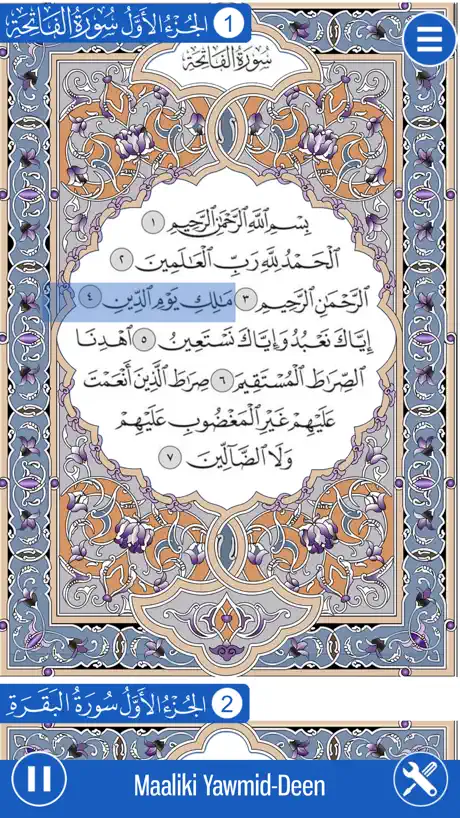 الجُزْءُ الأَوَّلُ سُورَةُ الفَاتِحَةِ 1
سُورَةُ الفَاتِحَةِ
بِسْمِ اللَّهِ الرَّحْمَٰنِ الرَّحِيمِ ١
الْحَمْدُ لِلَّهِ رَبِّ الْعَالَمِينَ ٢
الرَّحْمَٰنِ الرَّحِيمِ ٣ مَالِكِ يَوْمِ الدِّينِ ٤
إِيَّاكَ نَعْبُدُ وَإِيَّاكَ نَسْتَعِينُ ٥ اهْدِنَا
الصِّرَاطَ الْمُسْتَقِيمَ ٦ صِرَاطَ الَّذِينَ أَنْعَمْتَ
عَلَيْهِمْ غَيْرِ الْمَغْضُوبِ عَلَيْهِمْ
وَلَا الضَّالِّينَ ٧
الجُزْءُ الأَوَّلُ سُورَةُ البَقَرَةِ 2
Maaliki Yawmid-Deen